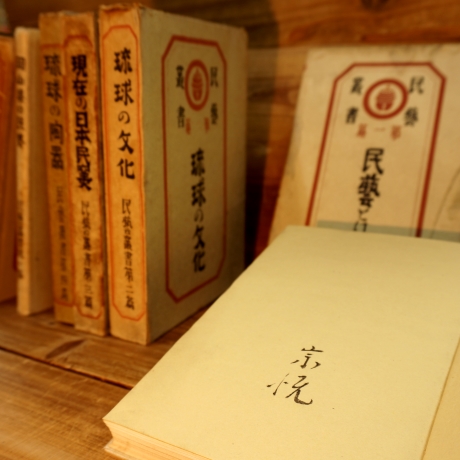 琉球の陶器
民藝叢書第四篇
現在の日本民窯
民藝叢書第三篇
琉球の文化
民藝叢書第二篇
民藝
叢書
琉球の文化
民藝
叢書
第一篇
民藝とは
宗悦